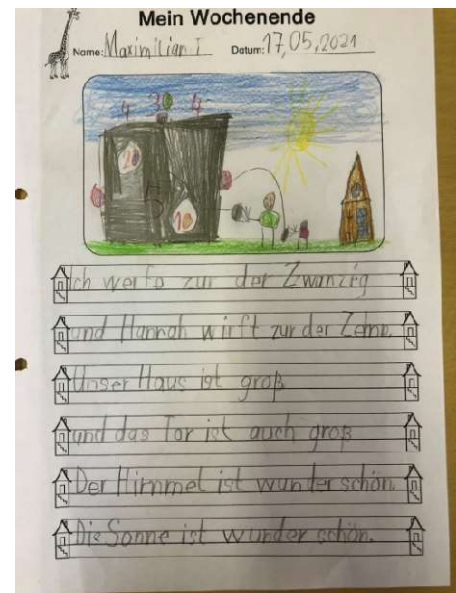 Mein Wochenende
Name: Maximilian I Datum: 17.05.2021
4 3 4
20
5
10
Ich werfe zur der Zwanzig
und Hannah wirft zur der Zehn.
Unser Haus ist groß
und das Tor ist auch groß
Der Himmel ist wunder schön.
Die Sonne ist wunder schön.